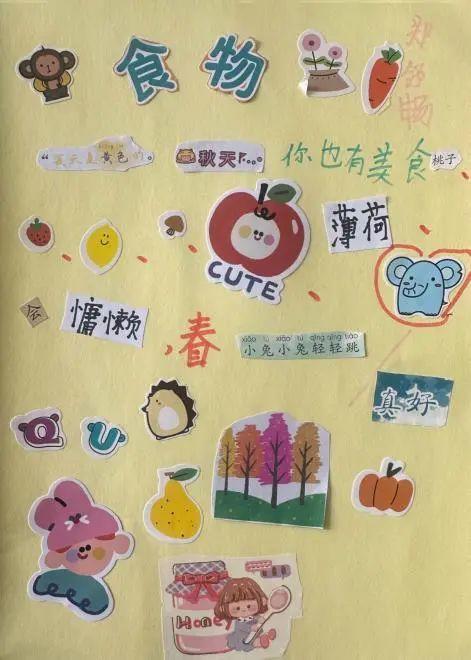 食物
郑舒畅
“夏天是黄色的。
秋天r...。
你也有美食
桃子
薄荷
CUTE
会
慵懒
春
xiǎo tù xiǎo tù qīng qīng tiào
小兔小兔轻轻跳
真好
Q U
Honey